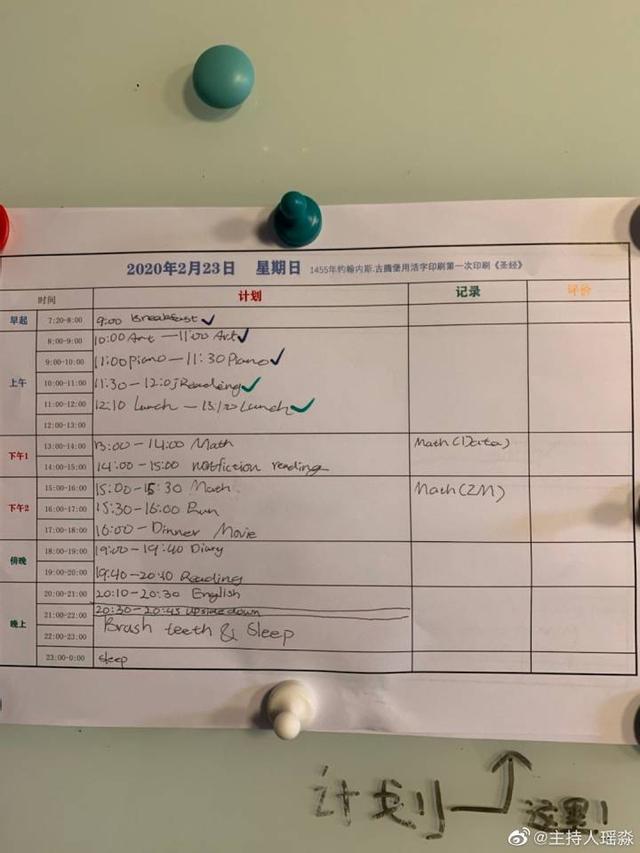 2020年2月23日 星期日 1455年约翰内斯.古腾堡用活字印刷第一次印刷《圣经》
时间 计划 记录 评价
早起 7:20-8:00 9:00 Breakfast ✓
8:00-9:00 10:00 Art — 11:00 Art ✓
9:00-10:00 11:00 piano — 11:30 Piano ✓
上午 10:00-11:00 11:30 - 12:0 Reading ✓
11:00-12:00 12:10 Lunch — 13:00 Lunch ✓
12:00-13:00
下午1 13:00-14:00 13:00 - 14:00 Math Math (Data)
14:00-15:00 14:00 - 15:00 nonfiction reading
15:00-16:00 15:00 - 15:30 Math Math (2M)
下午2 16:00-17:00 15:30 - 16:00 Run
17:00-18:00 16:00 - Dinner Movie
傍晚 18:00-19:00 19:00 - 19:40 Diary
19:00-20:00 19:40 - 20:10 Reading
20:00-21:00 20:10 - 20:30 English
21:00-22:00 20:30 - 20:45 upside down
晚上 Brash teeth & Sleep
22:00-23:00
23:00-0:00 Sleep
计划 这里!
@主持人瑶淼